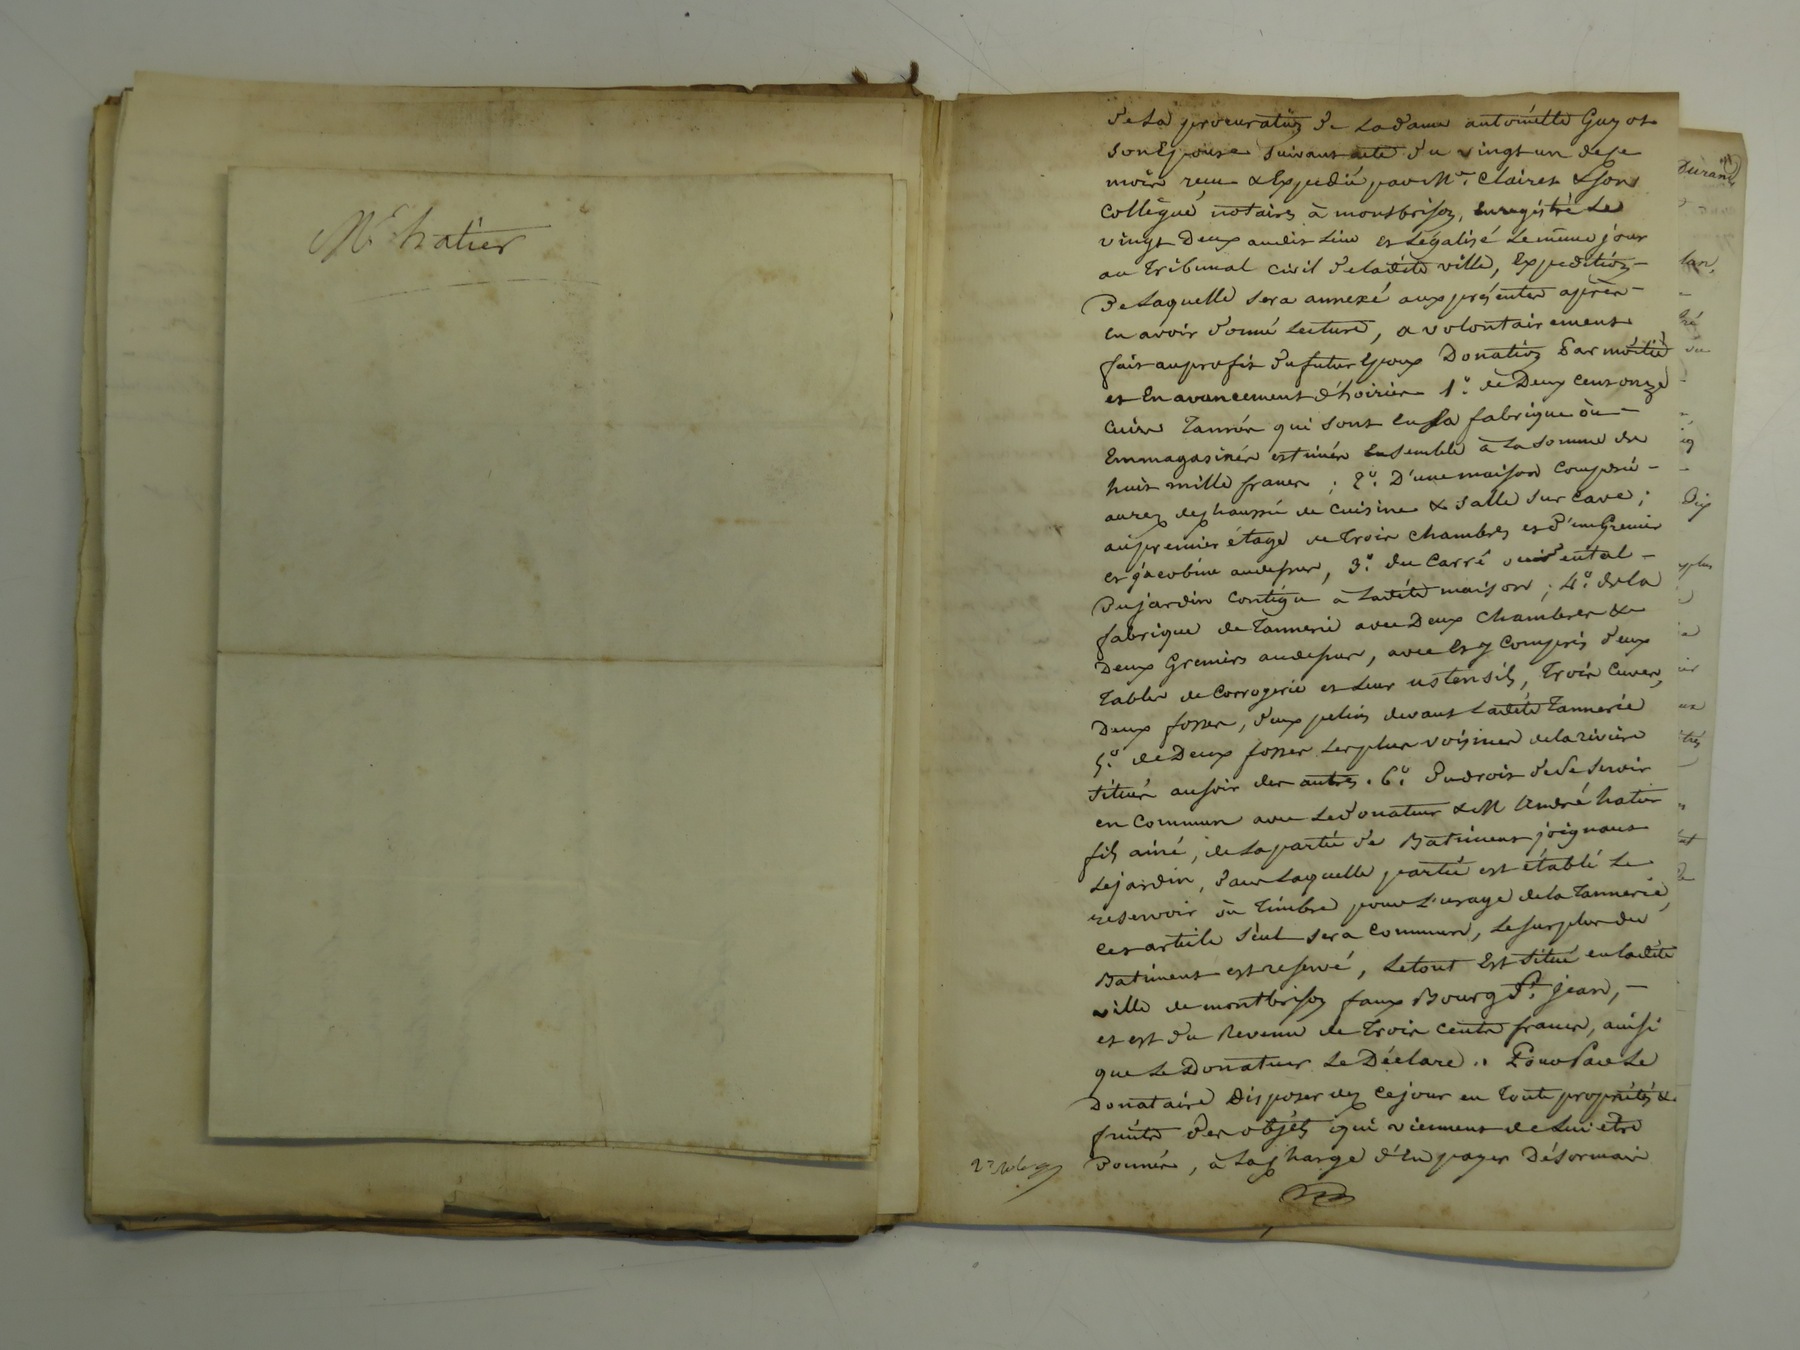 Mr hatier
de la procuration de la dame antoinette Guyot
son Epouse suivant acte du vingt un de ce
mois recu & Expedié par Mes. Clairet & son
Collègue notaires à montbrison, Enregistré le
vingt Deux audit lieu et Légalisé le même jour
au Tribunal civil de ladite ville, Expedition
De laquelle sera annexé aux présentes après
en avoir donné Lecture, a volontairement
fait au profit du futur Epoux Donation Par moitié
et En avancement d'hoirie 1.o de Deux cent onze
cuirs Tannés qui sont en sa fabrique où
Emmagasinés estimés Ensemble à la somme de
huit mille francs ; 2.o D'une maison Composée
au rez de chaussé de Cuisine & salle sur cave ;
au premier étage de trois chambres et d'un Grenier
et jacobine audessus, 3.o du Carré
Du jardin Contigu à ladite maison ; 4.o de la
fabrique de Tannerie avec Deux chambres &
Deux Greniers audessus, avec Et y Compris deux
Tables de Corrogerie et Leur ustensils, Trois Cuves,
Deux fosses, deux pelins devant ladite Tannerie
5.o de Deux fosses les plus voisines de la rivière
situés au soir des autres. 6.o du droit de se servir
en Commun avec le donateur & M André hatier
fils ainé, de la partie de Batiment joignant
Le jardin, dans Laquelle partie est établi Le
reservoir où Timbre pour L'usage de la Tannerie,
cet article seul sera Commun, Le surplus du
Batiment est reservé, Le tout Est situé en ladite
ville de montbrison faux Bourg St. jean,
et est du Revenu de Trois cents francs, ainsi
que Le Donateur Le Déclare.. Pour Par Le
Donataire Disposer dez ce jour en Toute propriétés &
fruits des objéts qui viennent de Lui être
Donnés, à La charge d'En payer Désormais
Durand